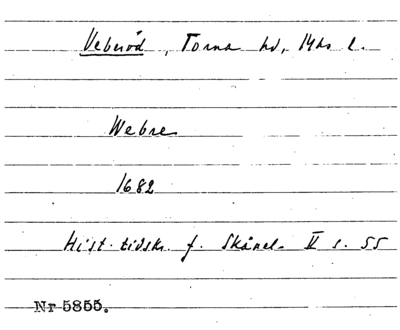 Veberöd, Torna hd, Mhs l.
Webre
1682
Hist. tidskr. f. Skånel. II s. 55
Nr 5855.